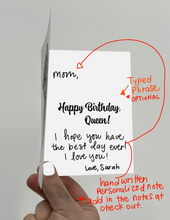 mom,
Typed
Phrase
OPTIONAL
Happy Birthday,
Queen!
I hope you have
the best day ever!
I love you!
Love, Sarah
handwritten
personalized note
Add in the notes at
check out.